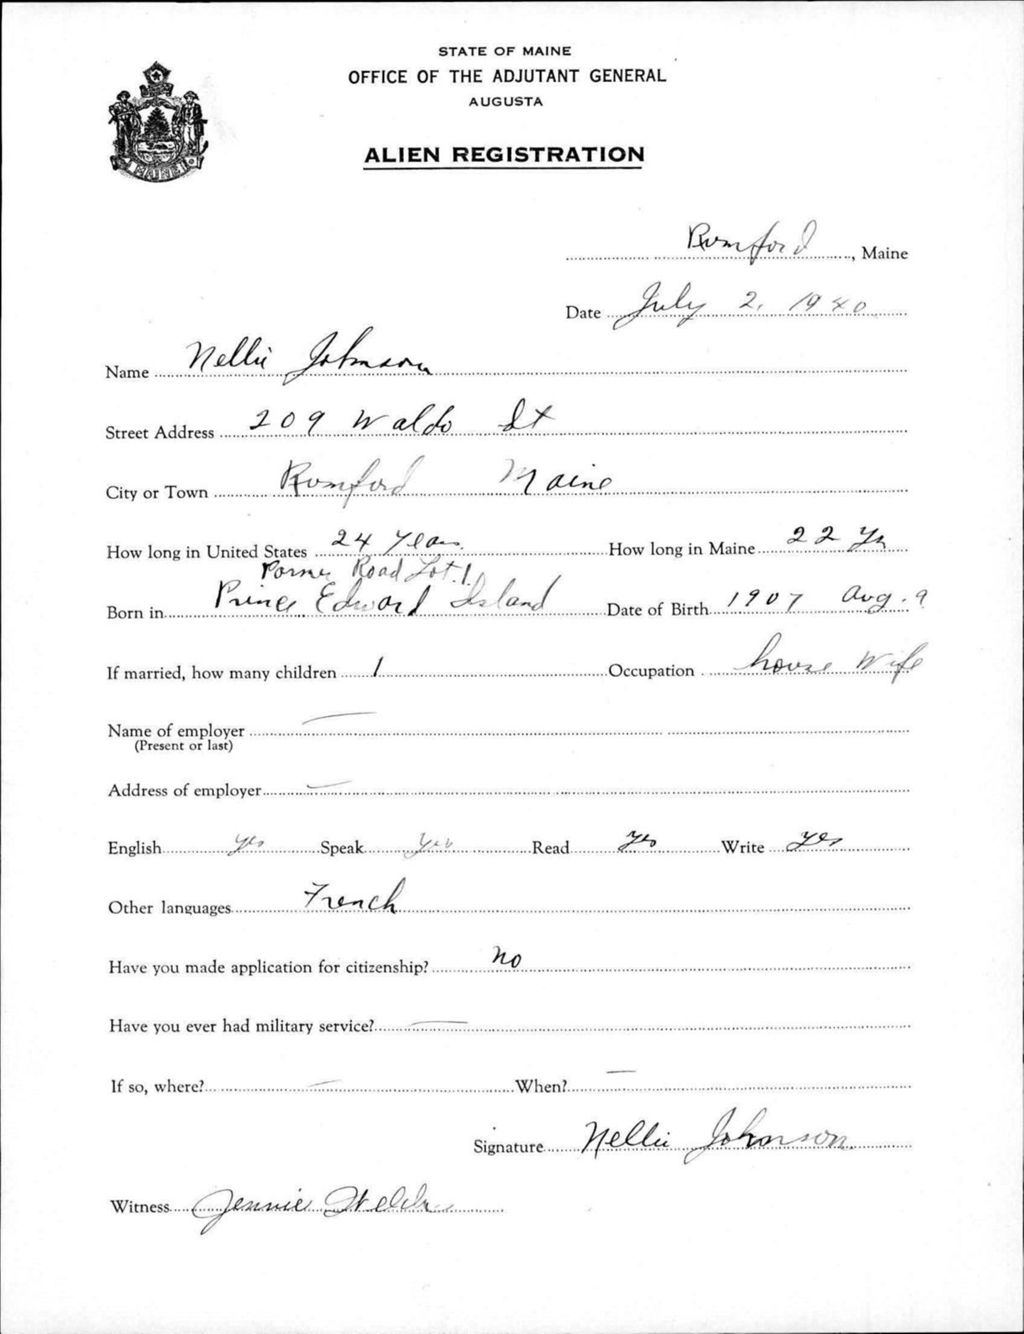 STATE OF MAINE
OFFICE OF THE ADJUTANT GENERAL
AUGUSTA
ALIEN REGISTRATION
MAINE
Rumford, Maine
Date July 2, 1940
Name Nellie Johnson
Street Address 209 Waldo St
City or Town Rumford Maine
How long in United States 24 Years How long in Maine 22 Yr
Road Lot 1
Born in Prince Edward Island Date of Birth 1907 Aug. 9
If married, how many children 1 Occupation house Wife
Name of employer —
(Present or last)
Address of employer —
English yes Speak yes Read yes Write yes
Other languages French
Have you made application for citizenship? no
Have you ever had military service? —
If so, where? — When? —
Signature Nellie Johnson
Witness Jennie